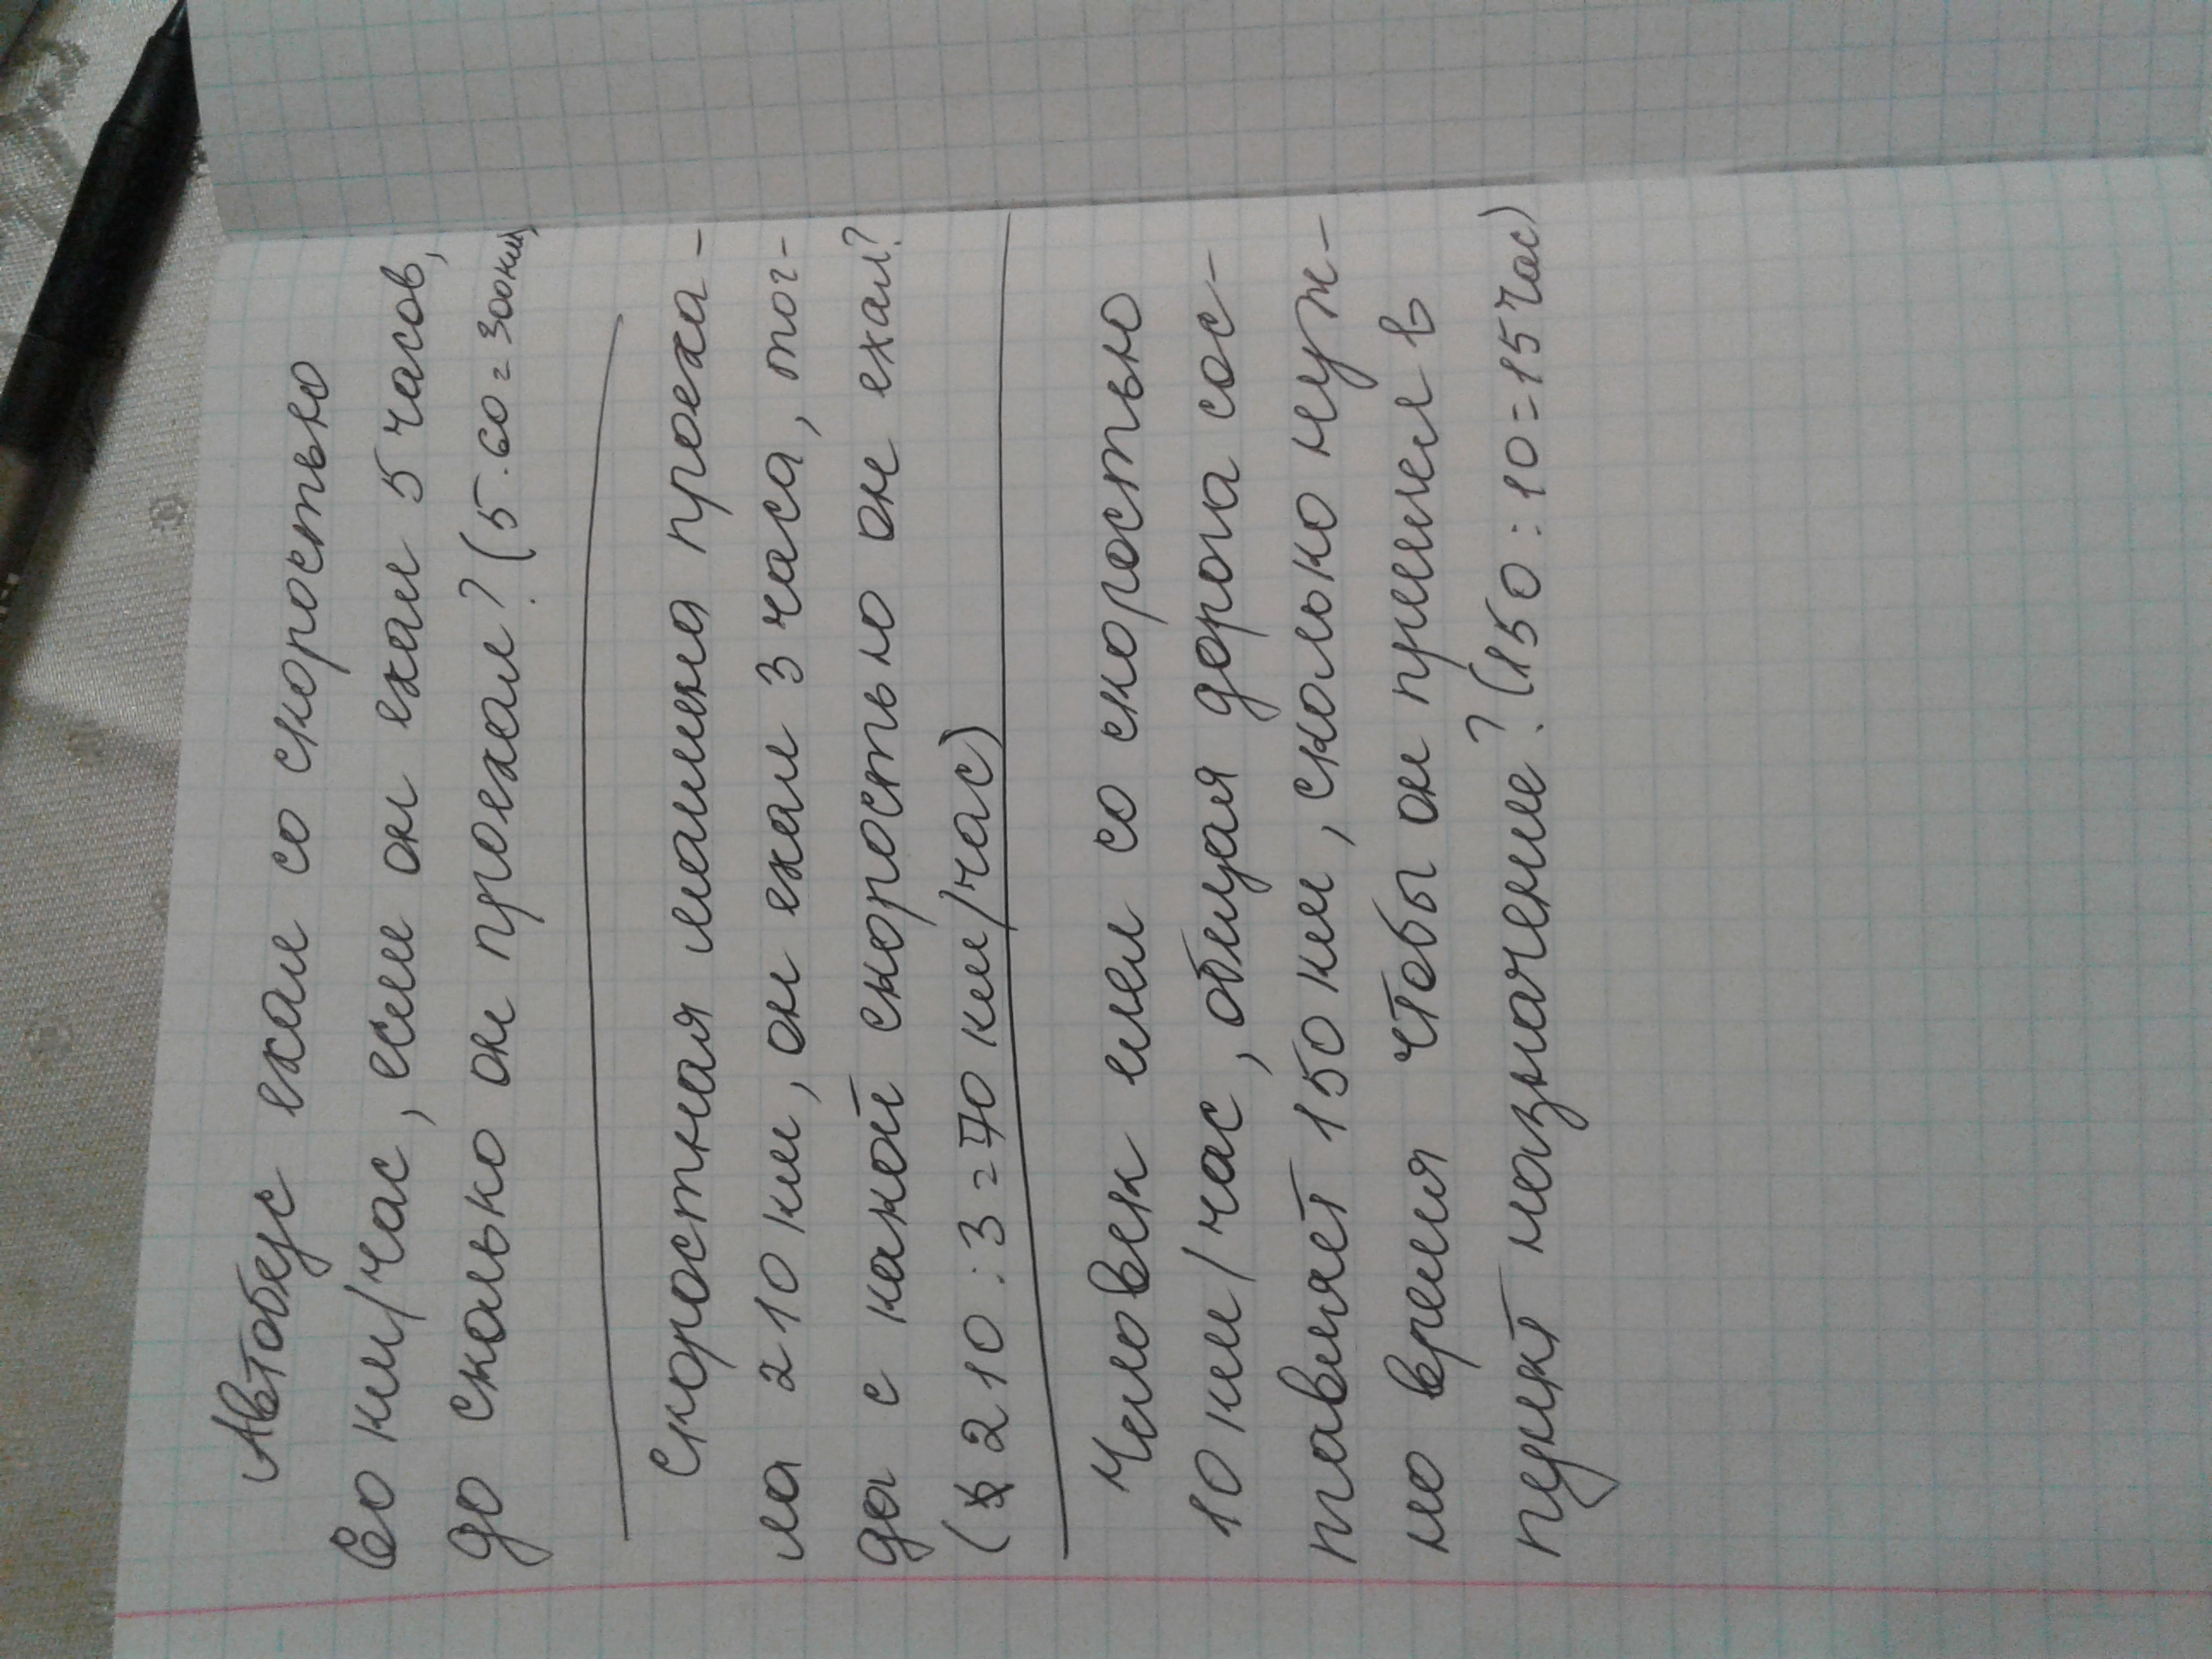 Автобус ехал со скоростью
60 км/час, если он ехал 5 часов,
до сколько он проехал? (5·60=300км)
Скоростная машина проеха-
ла 210 км, он ехал 3 часа, тог-
да с какой скоростью он ехал?
(210:3=70 км/час)
Человек шел со скоростью
10 км/час, общая дорога сос-
тавляет 150 км, сколько нуж-
но время чтобы он пришел в
пункт назначение? (150:10=15 час)